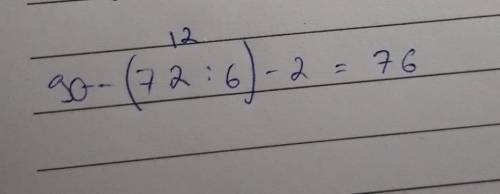 12
90 - (72 : 6) - 2 = 76